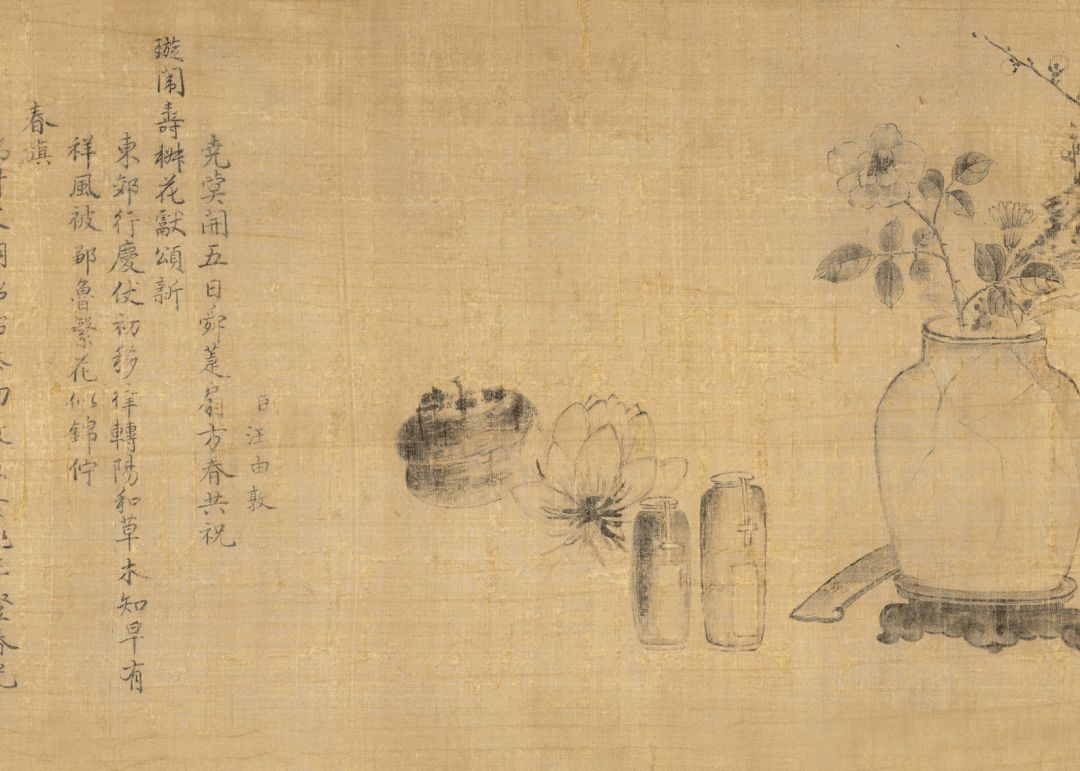 臣汪由敦
堯蓂開五日舜萐扇方春共祝
璇闈壽椒花獻頌新
東郊行慶仗初移律轉陽和草木知早有
祥風被鄒魯繁花似錦佇
春旗